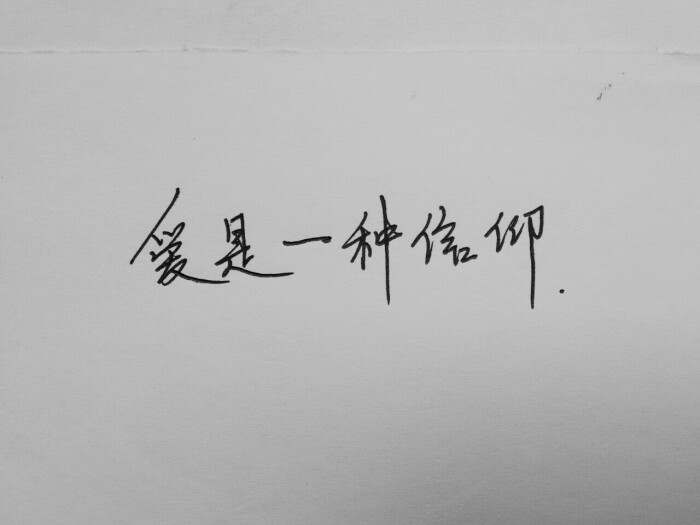 爱是一种信仰.